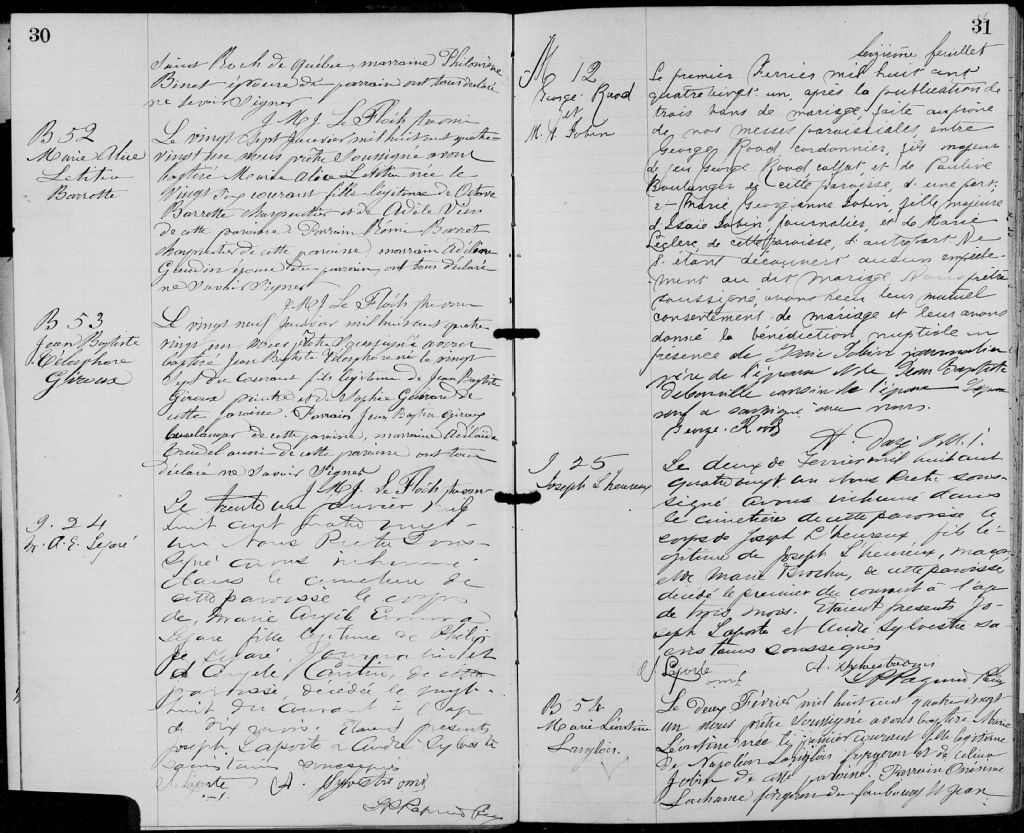 30
Saint Roch de Québec, marraine Philomène
Binet épouse du parrain ont tous déclaré
ne savoir signer
J. M. J. Le Floch ptre omi
B 52
Marie Alice
Letitia
Barrette
Le vingt sept Janvier mil huit cent quatre
vingt un nous prêtre soussigné avons
baptisé Marie Alice Letitia née le
vingt six courant fille légitime de Octave
Barrette charpentier et de Adèle
de cette paroisse. Parrain Rémi Barret
charpentier de cette paroisse, marraine Adéline
Gaudin épouse du parrain, ont tous déclaré
ne savoir signer
J. M. J. Le Floch ptre omi
B 53
Jean Baptiste
Télesphore
Giroux
Le vingt neuf Janvier mil huit cent quatre
vingt un nous prêtre soussigné avons
baptisé Jean Baptiste Télesphore né le vingt
sept du courant fils légitime de Jean Baptiste
Giroux peintre et de Sophie Guérard de
cette paroisse. Parrain Jean Baptiste Giroux
boulanger de cette paroisse, marraine Adélaïde
Trudel aussi de cette paroisse ont tous
déclaré ne savoir signer
J. M. J. Le Floch ptre omi
S. 24
M. A. E. Lefaré
Le trente un janvier mil
huit cent quatre vingt
un Nous Prêtre sous-
signé avons inhumé
dans le cimetière de
cette paroisse le corps
de, Marie Angèle Emma
Lefaré fille légitime de Philippe
Lefaré, Journalier et
d'Angèle Cantin, de cette
paroisse décédée le vingt
huit du courant à l'âge
de dix mois. Etaient présents
Joseph Laporte & André Sylvestre
sacristains soussignés
J. Laporte A. Sylvestre omi
omi
L P Paquin Ptre
31
Seizième feuillet
M 12
George Rood
et
M. G. Tobin
Le premier Février mil huit cent
quatre vingt-un, après la publication de
trois bans de mariage, faite au prône
de nos messes paroissiales, entre
George Rood cordonnier, fils majeur
de feu George Rood calfat, et de Pauline
Boulanger de cette paroisse, d'une part;
et Marie Georgianne Tobin, fille majeure
d'Isaïe Tobin, journalier, et de Marie
Leclerc, de cette paroisse, d'autre part. Ne
s'étant découvert aucun empêche-
ment au dit mariage Nous prêtre
soussigné avons reçu leur mutuel
consentement de mariage et leur avons
donné la bénédiction nuptiale en
présence de Isaïe Tobin journalier
père de l'épouse et de Jean Baptiste
cousin de l'épouse. L'époux
seul a signé avec nous.
George Rood
S 25
Joseph L'heureux
Le deux de Février mil huit cent
quatre vingt un Nous Prêtre sous-
signé avons inhumé dans
le cimetière de cette paroisse le
corps de Joseph L'heureux, fils lé-
gitime de Joseph L'heureux, maçon,
et de Marie Brochu, de cette paroisse,
décédé le premier du courant à l'âge
de trois mois. Etaient présents Jo-
seph Laporte et André Sylvestre sa-
cristains soussignés
J. Laporte A. Sylvestre omi
omi
L P Paquin Ptre
B 54
Marie Léontine
Langlois.
Le deux Février mil huit cent quatre vingt
un nous prêtre soussigné avons baptisé Marie
Léontine née le premier courant fille légitime
de Napoléon Langlois forgeron et de Célina
Jobin de cette paroisse. Parrain Onésime
Lachance forgeron du faubourg St Jean